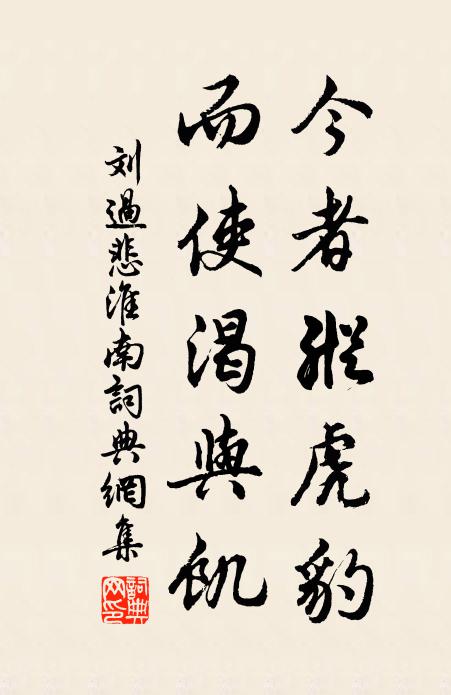 今者縱虎豹
而使渴與飢
刘過悲淮南詞典網集
詞典網印